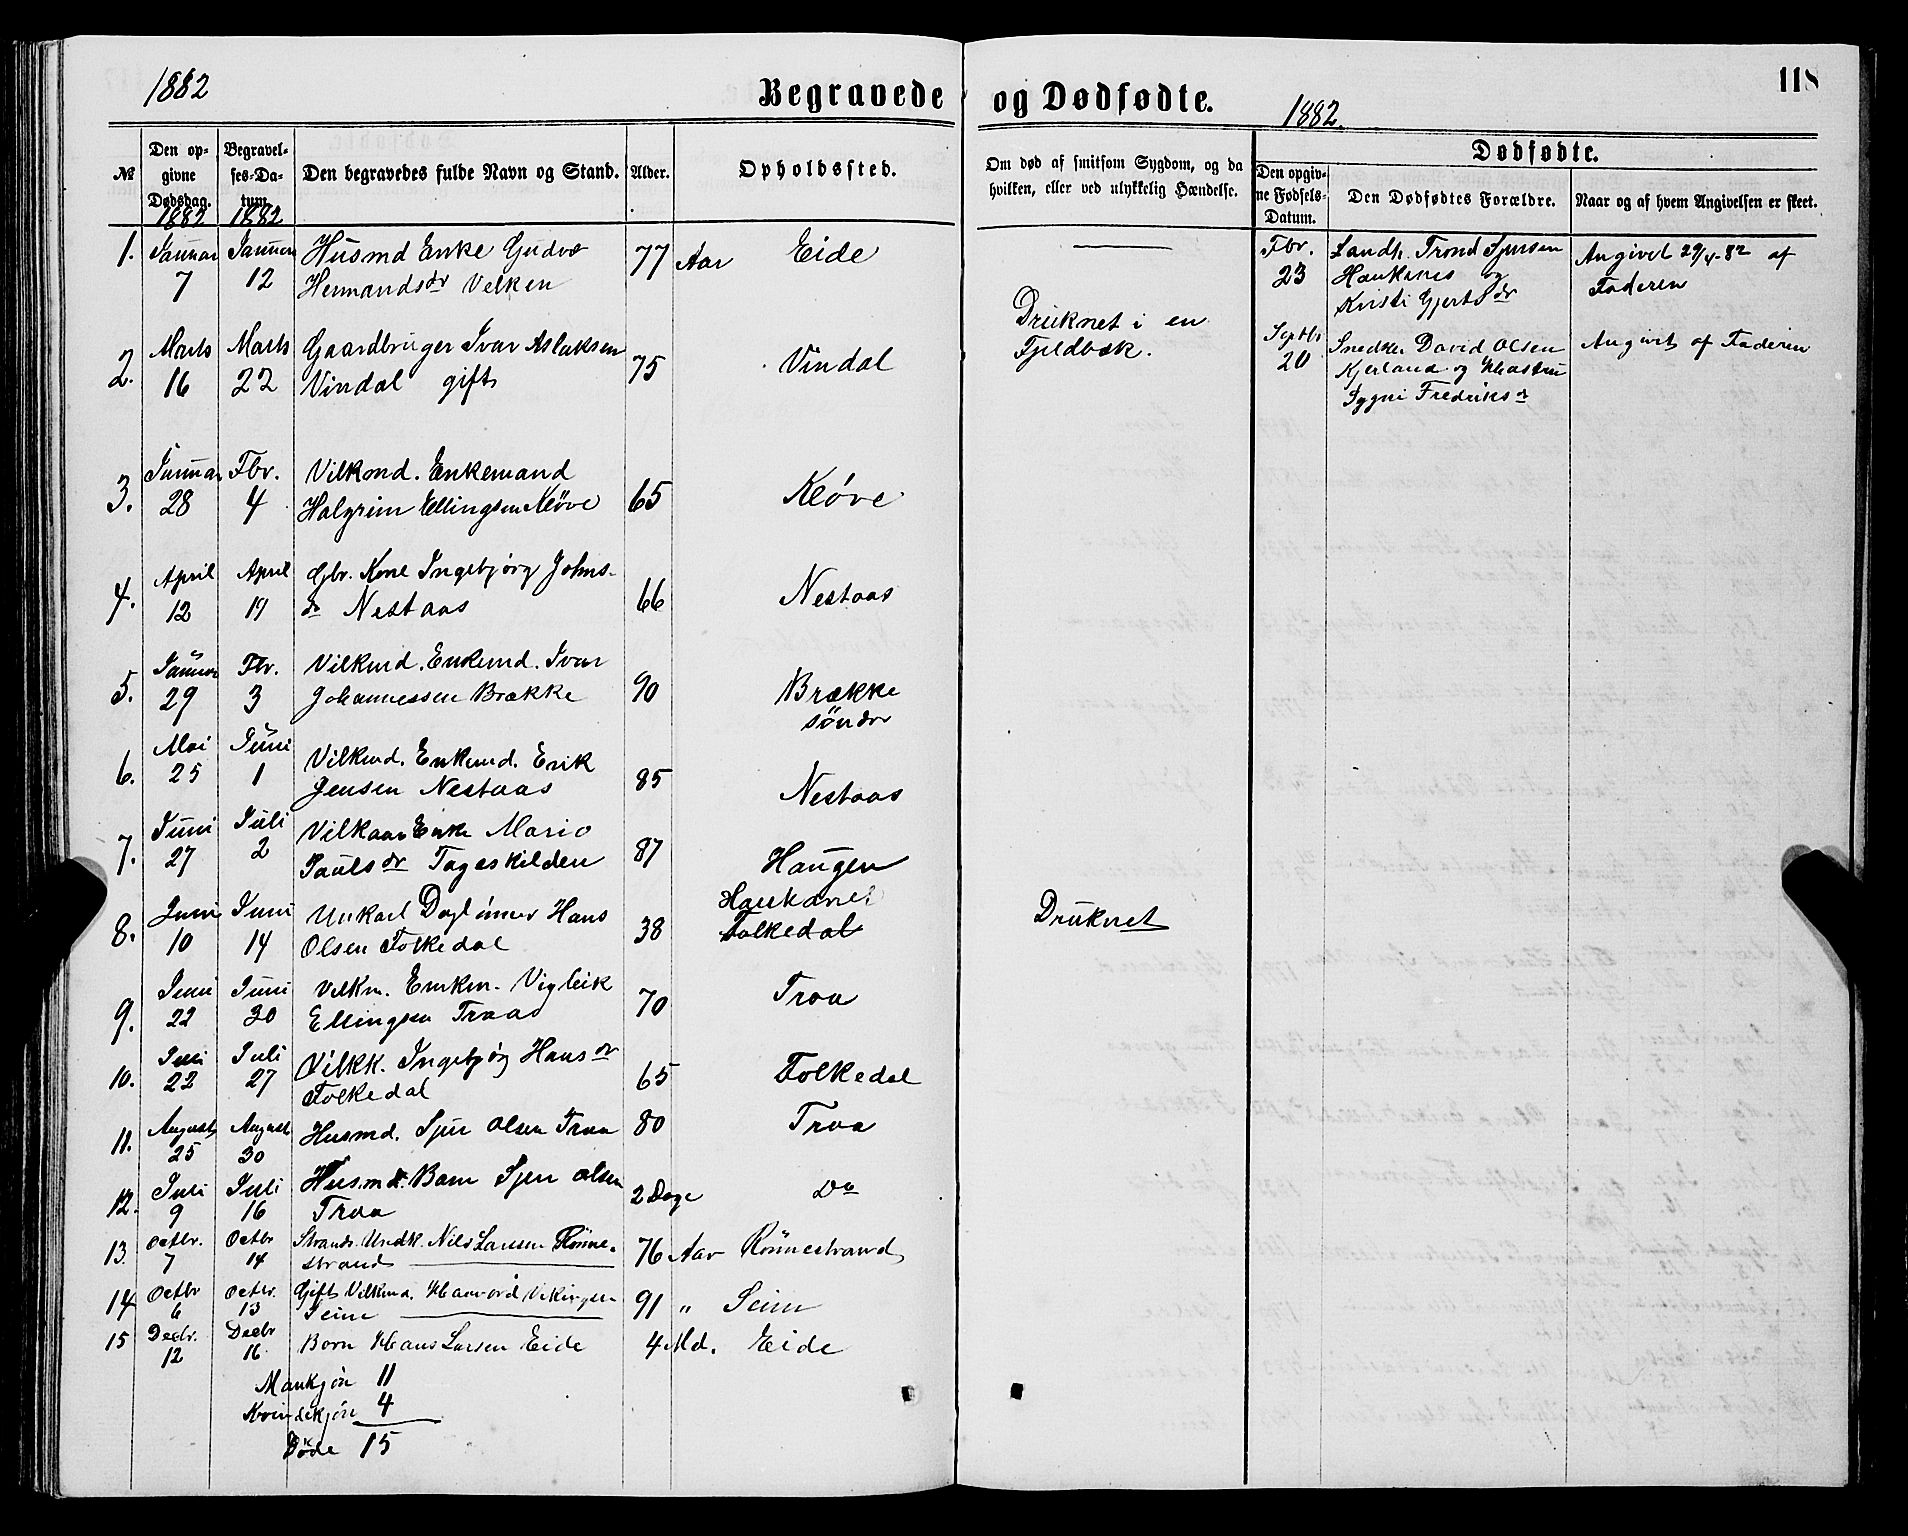 1882
Begravede og Dødfødte.
1882.
118
№
Den op-
givne
Dødsdag.
1882
Begravel-
ses-Da-
tum.
1882
Den begravedes fulde Navn og Stand.
Alder.
Opholdssted.
Om død af smitsom Sygdom, og da
hvilken, eller ved ulykkelig Hændelse.
Dødfødte.
Den opgiv-
ne Fødsels-
Datum.
Den Dødfødtes Forældre.
Naar og af hvem Angivelsen er skeet.
1. Januar 7 Januar 12 Husmd Enke Gudve
Hermandsdr Velken 77 Aar Eide
2. Marts 16 Marts 22 Gaardbruger Ivar Aslaksen
Vindal gift 75 Vindal
Druknet i en
Fjeldbæk.
3. Januar 28 Fbr. 4 Vilkmd. Enkemand
Halgrim Ellingsen Kløve 65 Kløve
4. April 12 April 19 Gbr. Kone Ingebjørg Johns-
dr Nestaas 66 Nestaas
5. Januar 29 Fbr. 3 Vilkmd. Enkemd. Ivar
Johannessen Brække 90 Brække
söndre
6. Mai 25 Juni 1 Vilkmd. Enkemd. Erik
Jensen Nestaas 85 Nestaas
7. Juni 27 Juli 2 Vilkaar Enke Mari
Paulsdr 87 Haugen
8. Juni 10 Juni 14 Unkarl Hans
Olsen Folkedal 38 Haukanes
Folkedal
Druknet
9. Juni 22 Juni 30 Vilkm. Enkem. Vigleik
Ellingsen Traa 70 Traa
10. Juli 22 Juli 27 Vilkk. Ingebjørg Hansdr
Folkedal 65 Folkedal
11. August 25 August 30 Husmd. Sjur Olsen Traa 80 Traa
12. Juli 9 Juli 16 Husmd. Barn Sjur Olsen
Traa 2 Dage Do
13. Octbr. 7 Octbr 14 Strands. Undk. Nils Larsen Rönne-
strand 76 Aar Rönnestrand
14 Octbr 6 Octbr. 13 Gift Vilkmd. Haavord Vikingsen
Seim 91 " Seim
15 Decbr. 12 Decbr 16. Barn Hans Larsen Eide 4 Md. Eide
Mankjön 11
Kvindekjön 4
Döde 15
Fbr.
23
Landh. Trond Sjursen
Haukanes og
Kristi Gjertsdr
Angivet 29/4-82 af
Faderen
Septbr
20
Snedker David Olsen
Kjerland og Hustru
Sygni Fredriksdr
Angivet af Faderen